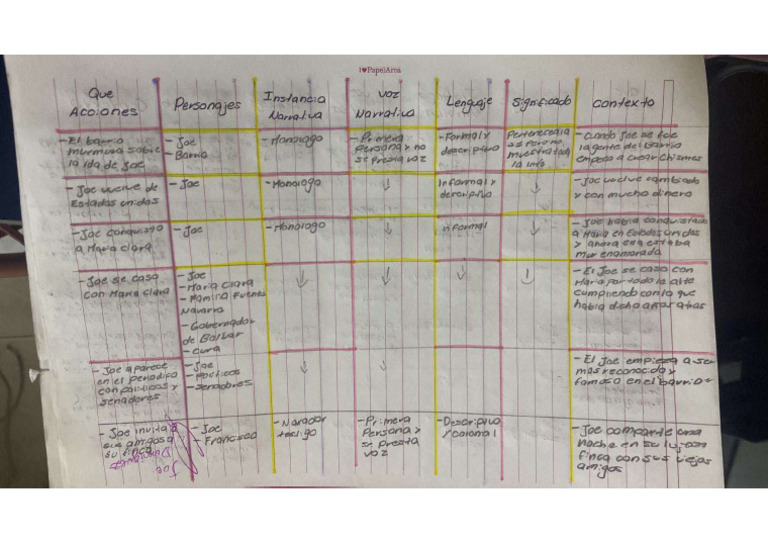 I♥PapelArea
Que
Acciones
Personajes
Instancia
Narrativa
voz
Narrativa
Lenguaje
Significado
contexto
- El barrio
murmura sobre
la ida de Joe
- Joe
- Barrio
- Monologo
- Primera
Persona y no
se presta voz
- Formal y
descriptivo
la info
- Cuando Joe se fue
la gente del barrio
empezo a crear chismes
- Joe vuelve de
Estados unidos
- Joe
- Monologo
↓
Informal y
descriptivo
↓
- Joe vuelve cambiado
y con mucho dinero
- Joe conquisto
a Maria clara
- Joe
- Monologo
↓
informal
↓
- Joe habia conquistado
a Maria en Estados unidos
y ahora ella estaba
muy enamorada
- Joe se casa
con Maria clara
- Joe
- Maria Clara
- Familia Fuentes
Navarro
- Gobernador
de Bolivar
- cura
↓
↓
↓
↓
- El Joe se caso con
Maria por todo lo alto
cumpliendo con lo que
habia dicho años atras
- Joe aparece
en el periodico
con politicos y
senadores
- Joe
- Politicos
- senadores
↓
↓
- El Joe empieza a ser
mas reconocido y
famoso en el barrio
- Joe invita a
sus amigos a
su finca
Joe
- Joe
- Francisco
- Narador
testigo
- Primera
Persona y
se presta
voz
- Descriptivo
y colonial
- Joe comparte esa
noche en su lujosa
finca con sus viejos
amigos